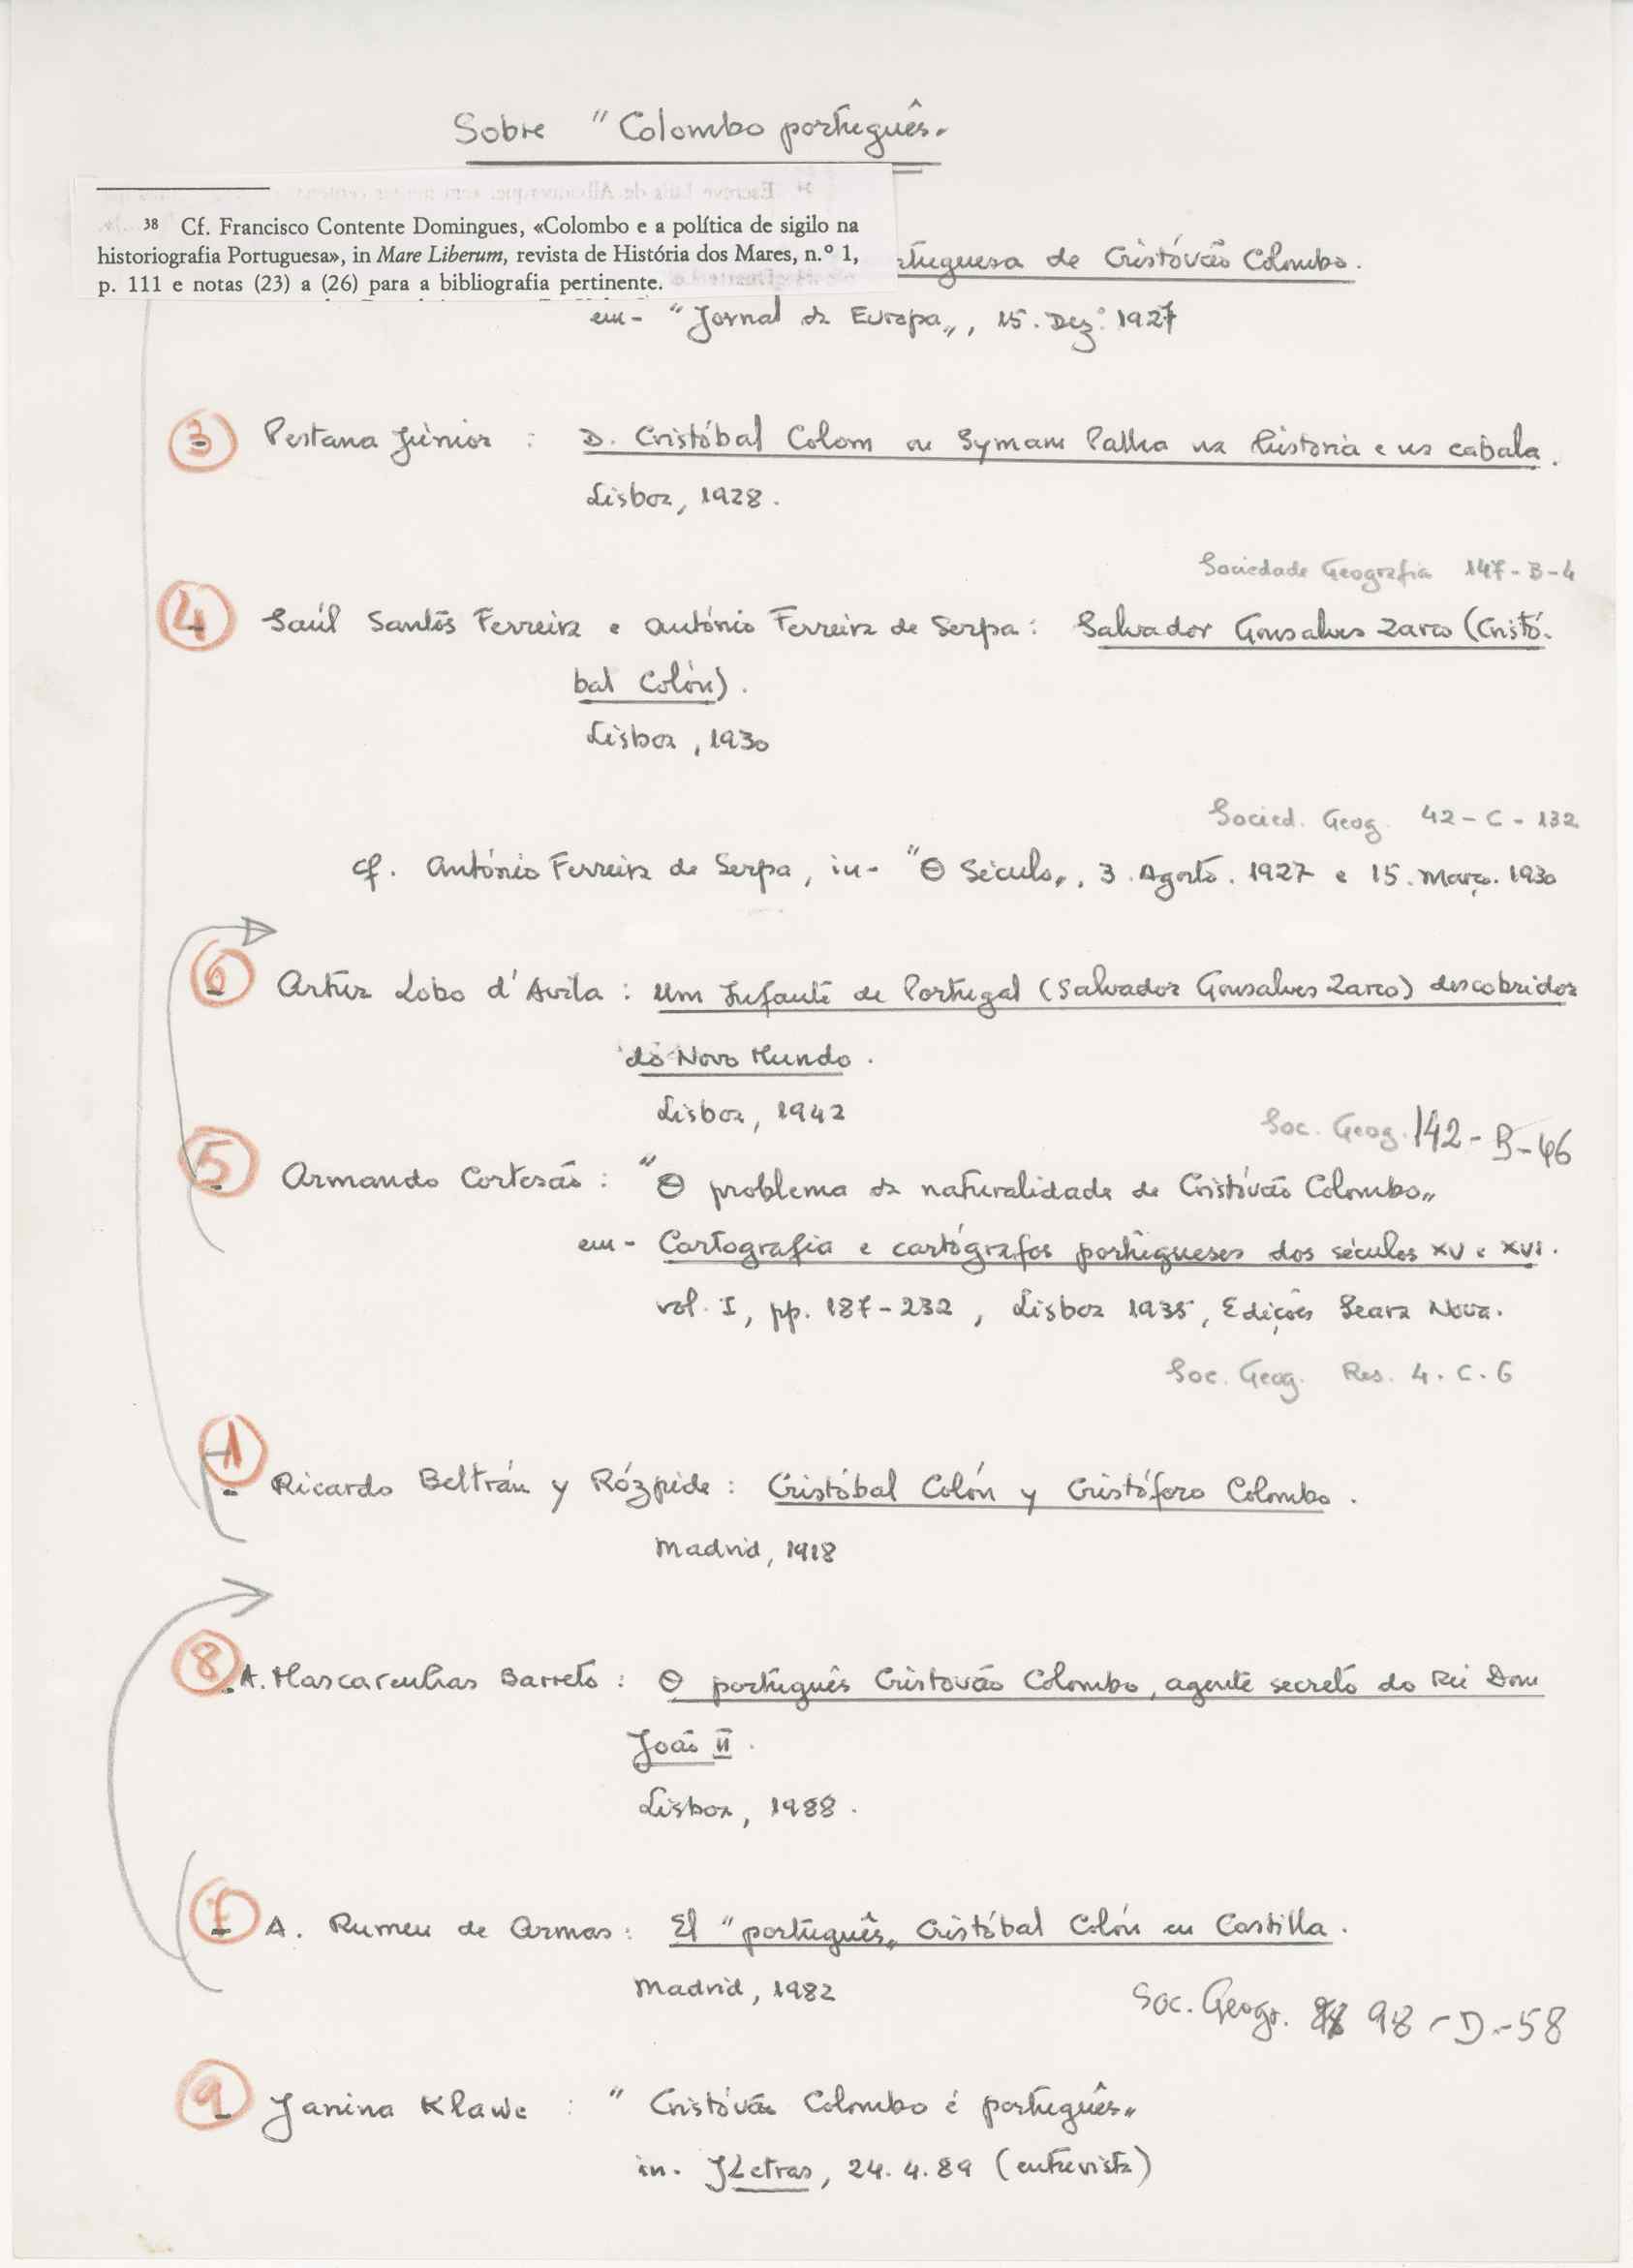 Sobre "Colombo português„
38 Cf. Francisco Contente Domingues, «Colombo e a política de sigilo na
historiografia Portuguesa», in Mare Liberum, revista de História dos Mares, n.º 1,
p. 111 e notas (23) a (26) para a bibliografia pertinente.
tuguesa de Cristóvão Colombo.
em - "Jornal da Europa„, 15. Dez.º 1927
3 Pestana Júnior : D. Cristóbal Colom ou Symam Palha na história e na cabala.
Lisboa, 1928.
Sociedade Geografia 147-B-4
4 Saúl Santos Ferreira e António Ferreira de Serpa: Salvador Gonsalves Zarco (Cristó-
bal Colón).
Lisboa, 1930
Socied. Geog. 42-C-132
cf. António Ferreira de Serpa, in - "O Século„, 3. Agosto. 1927 e 15. Março. 1930
6 Artur Lobo d'Avila : Um Infante de Portugal (Salvador Gonsalves Zarco) descobridor
do Novo Mundo.
Lisboa, 1942
Soc. Geog. 142-B-46
5 Armando Cortesão : "O problema da naturalidade de Cristóvão Colombo„
em - Cartografia e cartógrafos portugueses dos séculos XV e XVI.
vol. I, pp. 187-232, Lisboa 1935, Edições Seara Nova.
Soc. Geog. Res. 4.C.6
1 Ricardo Beltrán y Rózpide : Cristóbal Colón y Cristóforo Colombo.
Madrid, 1918
8 A. Mascarenhas Barreto : O português Cristovão Colombo, agente secreto do Rei Dom
João II.
Lisboa, 1988.
7 A. Rumeu de Armas : El "português„ Cristóbal Colón en Castilla.
Madrid, 1982
Soc. Geogr. 98-D-58
9 Janina Klawe : "Cristóvão Colombo é português„
in. JLetras, 24.4.89 (entrevista)